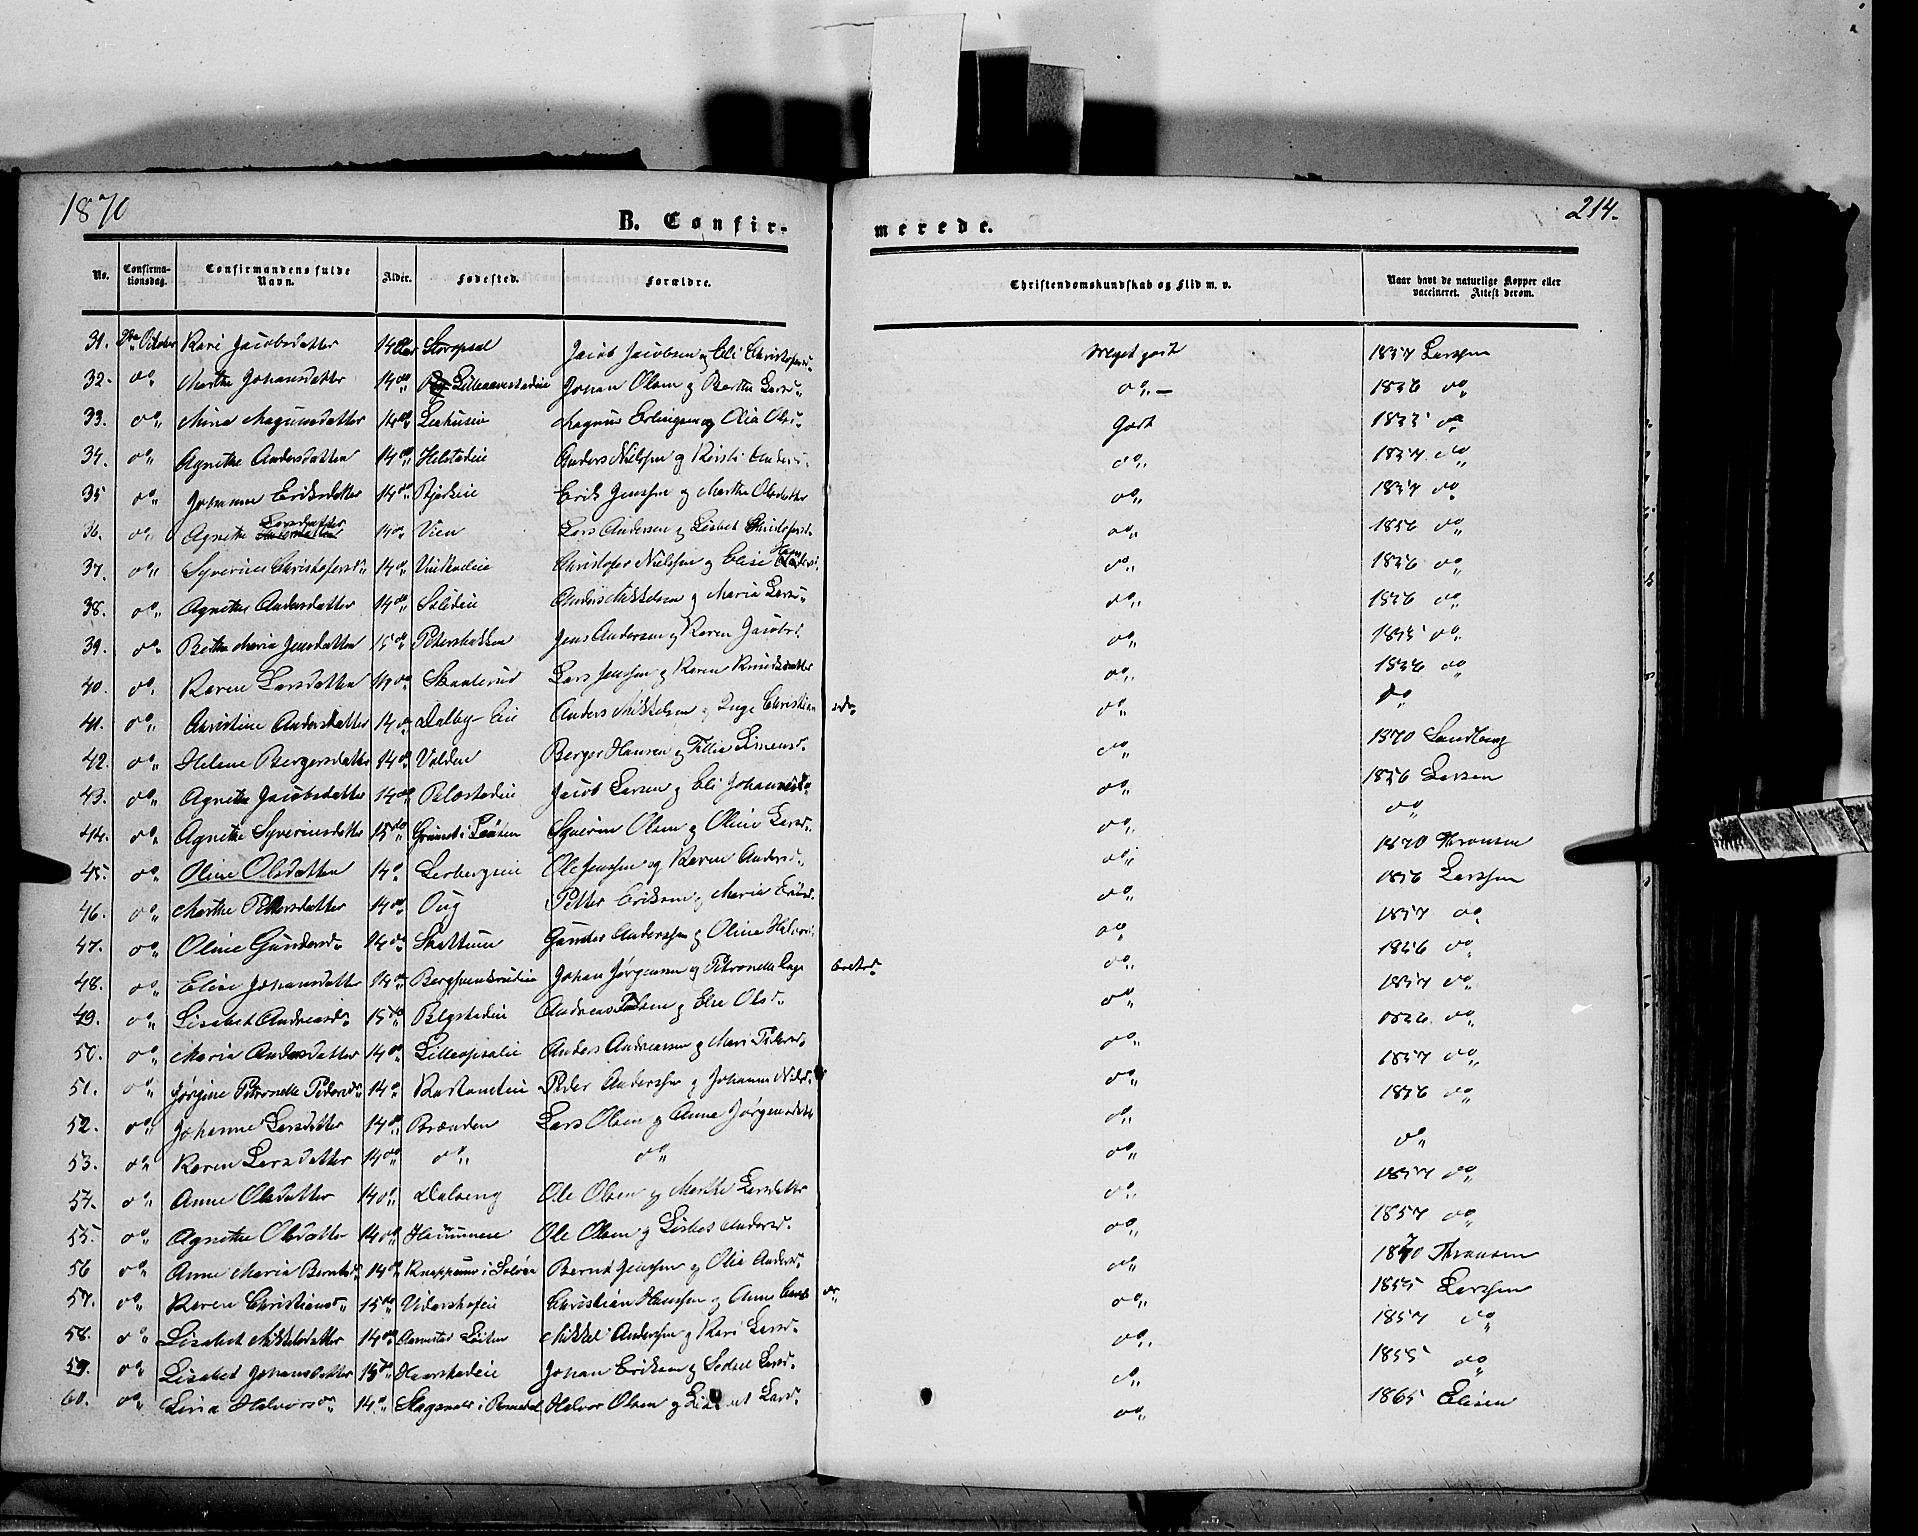 1870
214.
B. Confir-
merede.
No. Confirma-tionsdag. Confirmandens fulde Navn. Alder. Fødested. Forældre. Christendomskundskab og Flid m. v. Naar havt de naturlige Kopper eller vaccineret. Attest derom.
31. Kari Jacobsdatter 14 Jacob Jacobsen og Eli Meget godt 1857 Larssen
32. do Marthe Johansdatter 14 do Johan Olsen og Berthe Larsd. do 1856 do
33. do Mina Magnusdatter 14 do Magnus Erlingsen og Olia Olsd. Godt do
34. do Agnethe Andersdatter 14 do Helstadeie Anders Nielsen og Kirsti Andersd. do 1857 do
35 do Johanne Eriksdatter 14 do Bjerkeie Erik Jenssen og Marthe Olsdatter do 1857 do
36. do Agnethe Larsdatter 14 do Vien Lars Andersen og Lisbet Christofersd. do 1856 do
37. do Syverine Christofersd. 14 do Christofer Nielsen og Elise do 1856 do
38. do Agnethe Andersdatter 14 do Anders Mikkelsen og Maria Larsd. do 1856 do
39. do Berthe Maria Jensdatter 15 do Petersbakken Jens Andersen og Karen Jacobsd. do 1855 do
40. do Karen Larsdatter 14 do Skaalerud Lars Jenssen og Karen Knudsdatter do 1856 do
41. do Christine Andersdatter 14 do Dalby-Eie Anders Mikkelsen og Inge Christian do do
42. do Helene Bergersdatter 14 do Volden Berger Hansen og Simensd. do 1870 Sandberg
43. do Agnethe Jacobsdatter 14 do Jacob Larsen og Eli Johannesd. do 1856 Larsen
44. do Agnethe Syverinsdatter 15 do Grimset i Løiten Syverin Olsen og Oline Larsd. do do
45. do Oline Olsdatter 14 do Lerbergseie Ole Jenssen og Karen Andersd. do 1870 Thronsen
46. do Marthe Pettersdatter 14 do Oug Petter Eriksen og Maria Eriksd. do 1856 Larssen
47. do Oline Gundersd. 14 do Skattum Gunder Anderssen og Oline Halvorsd. do 1857 do
48. do Elise Johansdatter 14 do Johan Jørgensen og Petronelle do 1856 do
49. do Lisabet Andreasd. 15 do Andreas og Else Olsd. do 1857 do
50. do Maria Andersdatter 14 do Lilleopsalie Anders Andreassen og Mari Pedersd. do do
51. do Jørgine Petronelle Pedersd. 14 do Peder Anderssen og Johanne Nilsd. do 1857 do
52. do Johanne Larsdatter 14 do Brænden Lars Olsen og Anne Jørgensdatter do 1856 do
53. do Karen Larsdatter 14 do do do do do
54. do Anne Olsdatter 14 do Dalseng Ole Olsen og Marthe Larsdatter do 1857 do
55. do Agnethe Olsdatter 14 do Ole Olsen og Lisbet Andersd. do 1857 do
56 do Anne Maria Berntsd. 14 do Bernt Jenssen og Olia Andersd. do 1870 Thronsen
57. do Karen Christiansd. 15 do Vidarshofeie Christian Hanssen og Anne do 1855 Larssen
58. do Lisabet Mikkelsdatter 14 do Aamstad Løiten Mikkel Anderssen og Kari Larsd. do 1857 do
59. do Lisabet Johansdatter 15 do Haarstadeie Johan Eriksen og Sedsel Larsd. do 1855 do
60. do Lina Halvorsd. 14 do i Romedal Halvor Olsen og Lisabet Larsd. do 1865 Elisen